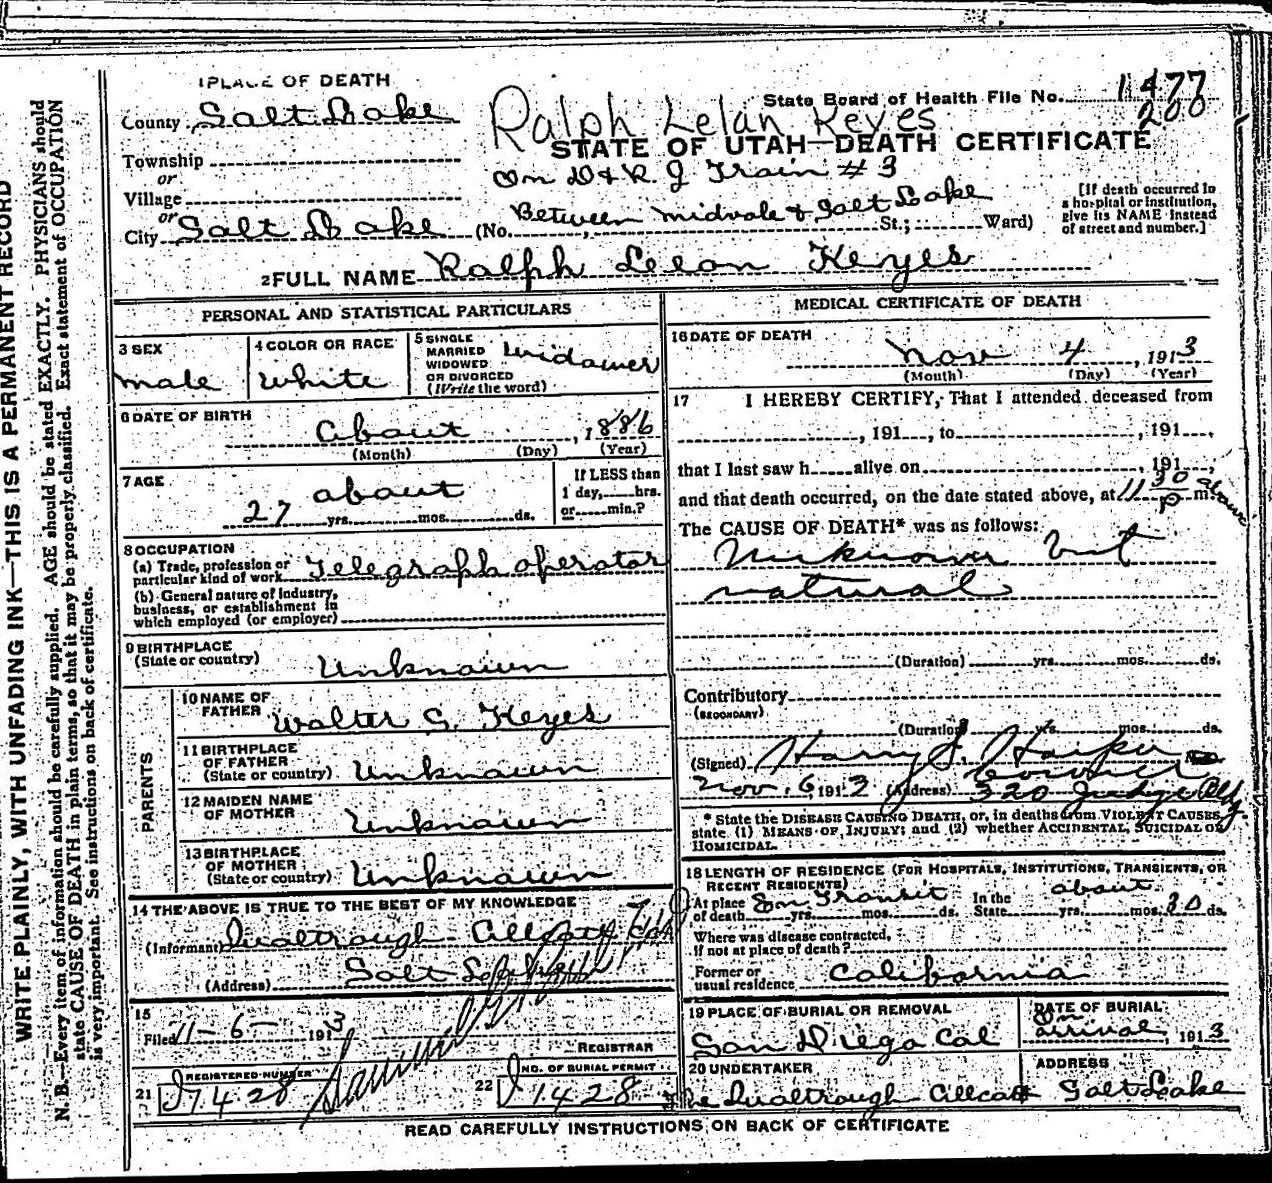 1 PLACE OF DEATH
State Board of Health File No. 1477
200
County Salt Lake
Ralph Lelan Keyes
STATE OF UTAH—DEATH CERTIFICATE
Township
or
Village
or
City Salt Lake
On D & R. G Train # 3
(No. Between Midvale & Salt Lake St.; Ward)
[If death occurred in
a hospital or institution,
give its NAME instead
of street and number.]
2 FULL NAME Ralph Lelan Keyes
PERSONAL AND STATISTICAL PARTICULARS
3 SEX
male
4 COLOR OR RACE
white
5 SINGLE
MARRIED
WIDOWED
OR DIVORCED
(Write the word)
widower
6 DATE OF BIRTH
about , 1886
(Month) (Day) (Year)
7 AGE
about
27 yrs. mos. ds.
If LESS than
1 day, hrs.
or min.?
8 OCCUPATION
(a) Trade, profession or
particular kind of work Telegraph operator
(b) General nature of industry,
business, or establishment in
which employed (or employer)
9 BIRTHPLACE
(State or country) Unknown
PARENTS
10 NAME OF
FATHER Walter G. Keyes
11 BIRTHPLACE
OF FATHER
(State or country) Unknown
12 MAIDEN NAME
OF MOTHER Unknown
13 BIRTHPLACE
OF MOTHER
(State or country) Unknown
14 THE ABOVE IS TRUE TO THE BEST OF MY KNOWLEDGE
(Informant)
(Address) Salt Lake
15
Filed 11-6- 1913
REGISTRAR
21 REGISTERED NUMBER
J 1428
22 NO. OF BURIAL PERMIT
J 1428
MEDICAL CERTIFICATE OF DEATH
16 DATE OF DEATH
Nov 4 , 1913
(Month) (Day) (Year)
17 I HEREBY CERTIFY, That I attended deceased from
, 191 , to , 191 ,
that I last saw h alive on , 191 ,
and that death occurred, on the date stated above, at 11 30 P m. about
The CAUSE OF DEATH* was as follows:
Unknown but
natural
(Duration) yrs. mos. ds.
Contributory
(SECONDARY)
(Duration) yrs. mos. ds.
(Signed) Harry S. Harper
Coroner
Nov. 6, 1913 (Address) 320 Judge Bldg.
* State the DISEASE CAUSING DEATH, or, in deaths from VIOLENT CAUSES,
state (1) MEANS OF INJURY; and (2) whether ACCIDENTAL, SUICIDAL OR
HOMICIDAL.
18 LENGTH OF RESIDENCE (FOR HOSPITALS, INSTITUTIONS, TRANSIENTS, OR
RECENT RESIDENTS)
At place
of death In Transit yrs. mos. ds. In the
State about yrs. mos. 30 ds.
Where was disease contracted,
if not at place of death?
Former or
usual residence California
19 PLACE OF BURIAL OR REMOVAL
San Diego Cal
DATE OF BURIAL
On arrival, 1913
20 UNDERTAKER
The Qualtrough Allcott
ADDRESS
Salt Lake
READ CAREFULLY INSTRUCTIONS ON BACK OF CERTIFICATE
WRITE PLAINLY, WITH UNFADING INK—THIS IS A PERMANENT RECORD
N. B.—Every item of information should be carefully supplied. AGE should be stated EXACTLY. PHYSICIANS should
state CAUSE OF DEATH in plain terms, so that it may be properly classified. Exact statement of OCCUPATION
is very important. See instructions on back of certificate.